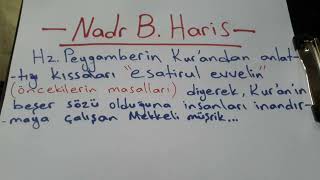 - Nadr B. Haris -
Hz. Peygamberin Kur'andan anlat-
-tığı kıssaları "esatirul evvelin"
(öncekilerin masalları) diyerek, Kur'an'ın
beşer sözü olduğuna insanları inandır-
-maya çalışan Mekkeli müşrik...